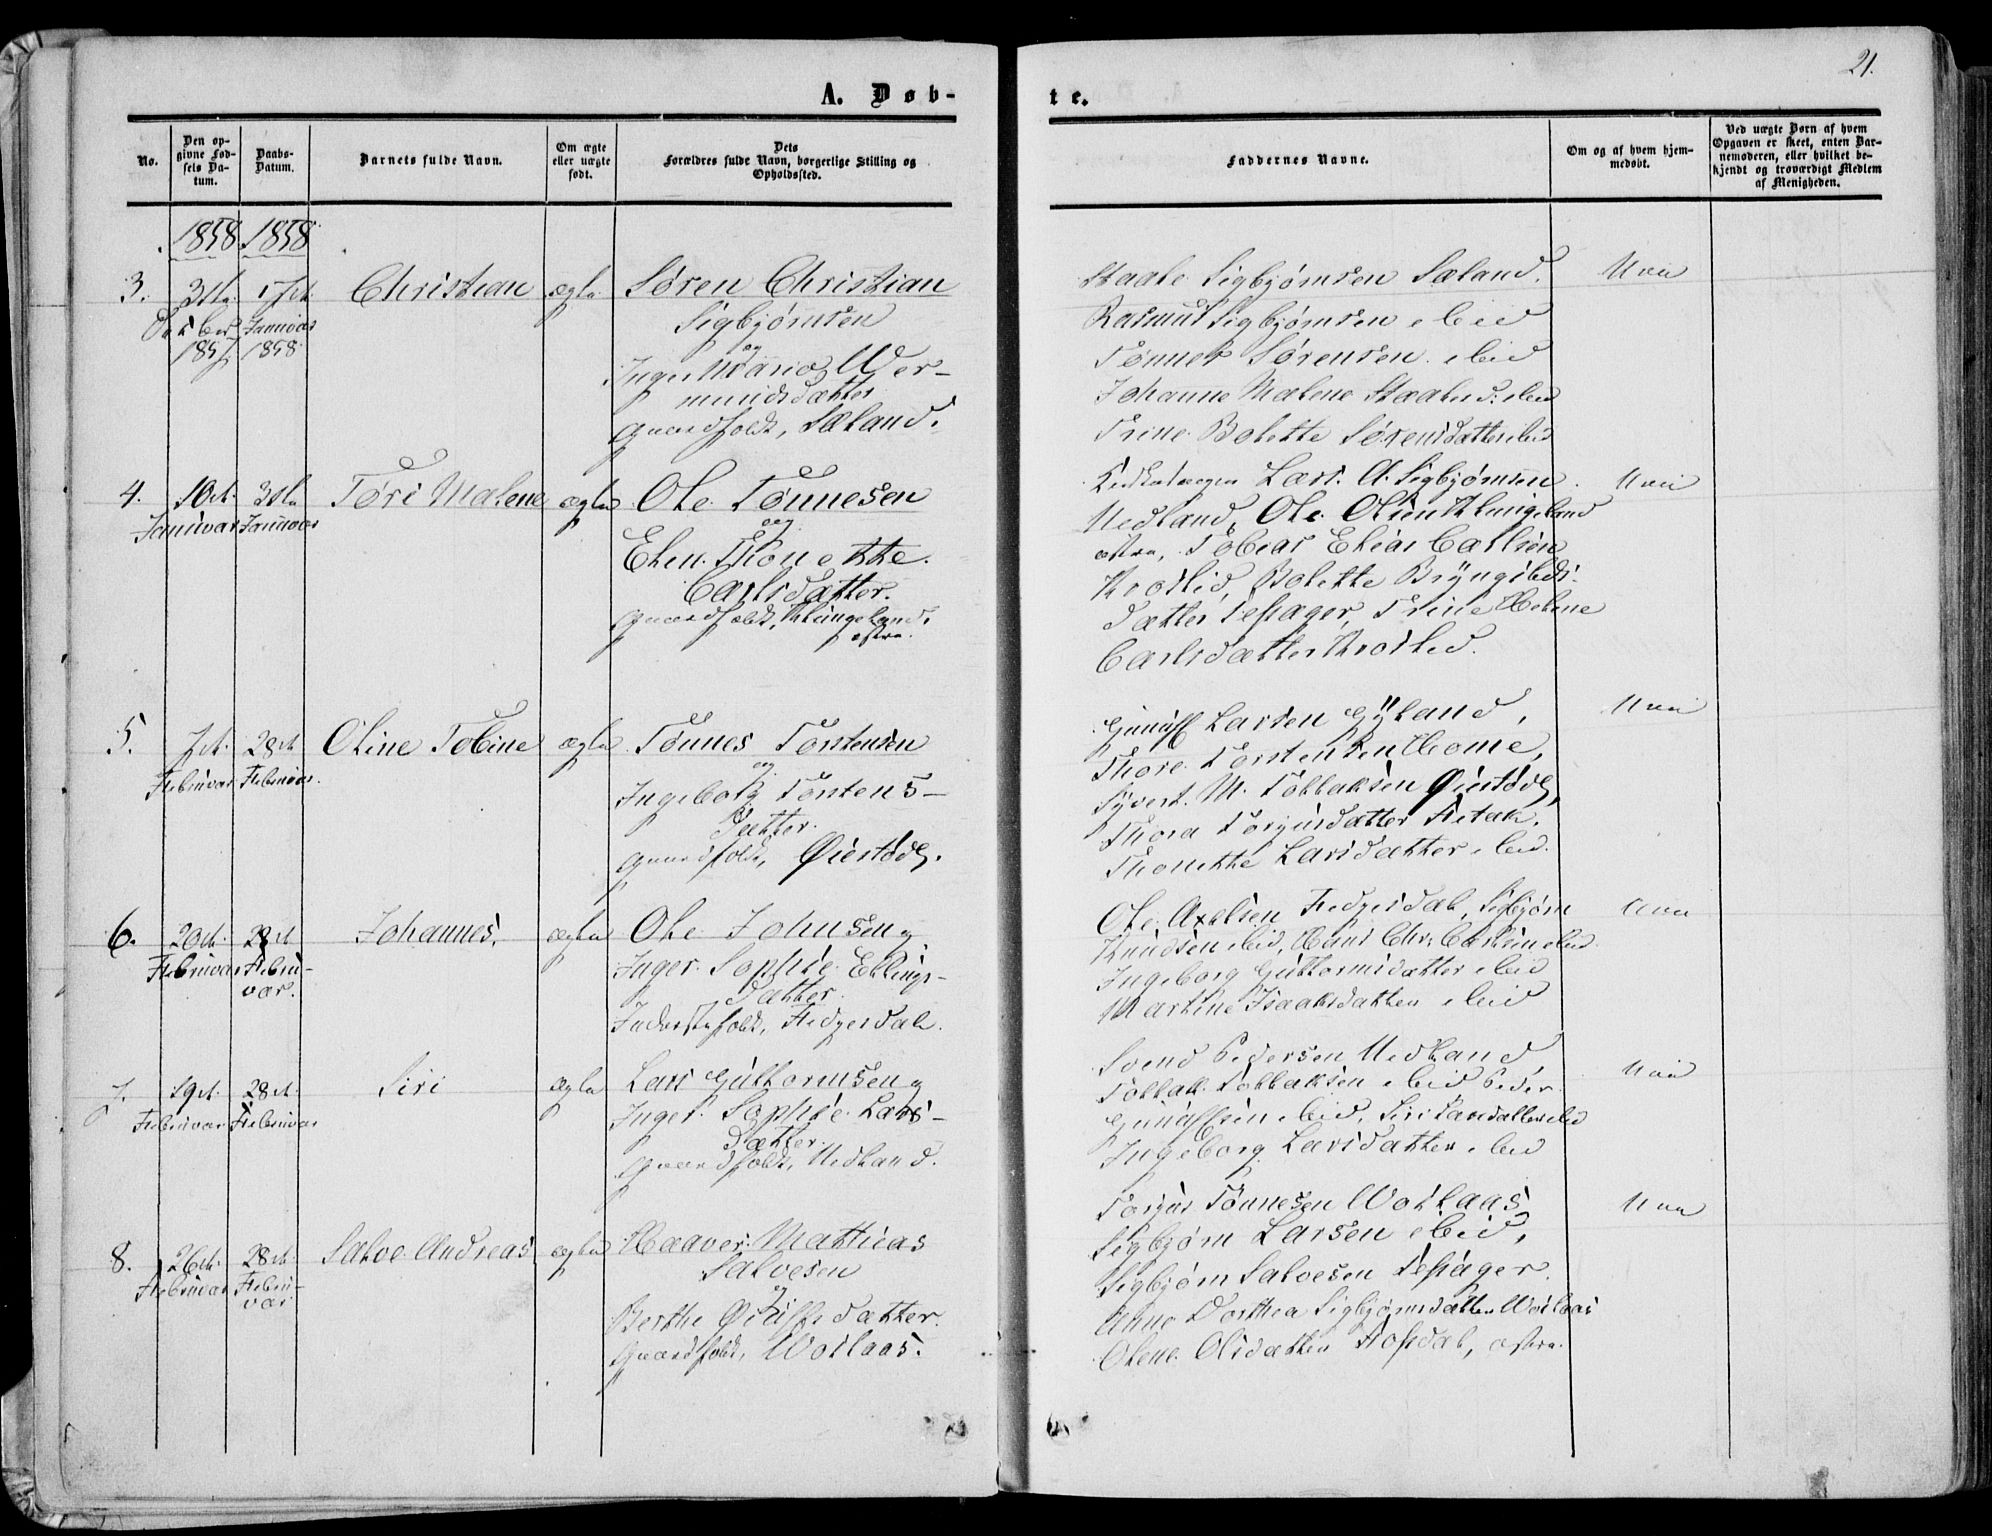 21.
A. Døb-
te.
No.
Den op-
givne Fød-
sels Da-
tum.
Daabs-
Datum.
Barnets fulde Navn.
Om ægte
eller uægte
født.
Dets
Forældres fulde Navn, borgerlige Stilling og
Opholdssted.
Faddernes Navne.
Om og af hvem hjem-
medøbt.
Ved uægte Børn af hvem
Opgaven er skeet, enten Bar-
nemoderen, eller hvilket be-
kjendt og troværdigt Medlem
af Menigheden.
1858 1858
3.
1857
17de
Januar
1858
Christian
ægte
Søren Christian
Sigbjørnsen
og
Inger Maria Wer-
mundsdatter
Gaardfolk, Sæland.
Staale Sigbjørnsen Sæland.
Rasmus Sigbjørnsen ibid
Tønnes Sørensen ibid
Johanne Malene Staalesd. ibid
Trine Bolette Sørensdatter ibid
Nei
4.
10de
Januar
31te
Januar
Tøri Malene
ægte
Ole Tønnesen
og
Elen Thonette
Carlsdatter.
Gaardfolk, Klungeland,
østre.
Lars A. Sigbjørnsen
Nedland, Ole Olsen Klungeland
østre, Tobias Elias Carlsen
Kroslid, Bolette Bryngels-
datter Tesager, Trine Helene
Carlsdatter Kroslid.
Nei
5.
7de
Februar
28de
Februar.
Oline Tobine
ægte
Tønnes Torstensen
og
Ingeborg Torstens-
datter.
Gaardfolk, Øiestøl.
Gunulf Larsen Gyland,
Thore Torstensen Home,
Syvert M. Tollaksen Øiestøl,
Thora Torjusdatter Fletak.
Thonette Larsdatter ibid.
Nei
6.
20de
Februar
28de
Febru-
var.
Johannes.
ægte
Ole Johnsen og
Inger Sophie Ellings-
datter.
Inderstfolk, Fedjesdal.
Ole Axelsen Fedjesdal, Sigbjørn
Knudsen ibid, Hans Chr. Carlsen ibid.
Ingeborg Guttormsdatter ibid
Martine Isaaksdatter ibid
Nei
7.
19de
Februar
28de
Februar
Siri
ægte
Lars Guttormsen og
Inger Sophie Lars-
datter.
Gaardfolk, Nedland.
Svend Pedersen Nedland
Tollak Tollaksen ibid Peder
Gunulfsen ibid, Siri Larsdatter ibid
Ingeborg Larsdatter ibid
Nei
8.
26de
Februar
28de
Febru-
var
Salve Andreas
ægte
Haaver Mathias
Salvesen
og
Berthe Øiulfsdatter.
Gaardfolk, Worlaas.
Torjus Tønnesen Worlaas
Sigbjørn Larsen ibid,
Sigbjørn Salvesen Tesager.
Anne Dorthea Sigbjørnsdatter Worlaas
Olene Olsdatter Flosdal, østre.
Nei